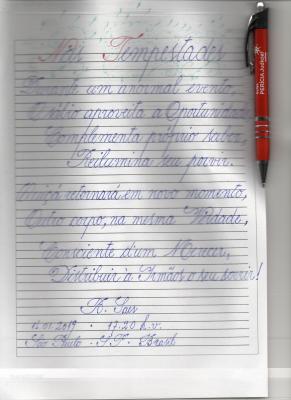 Nas Tempestades
Durante um anormal evento,
O sábio aproveita a Oportunidade
Complementa próprio saber,
Reilumina seu porvir.
retornará em novo momento,
Outro corpo, na mesma Verdade,
Consciente d'um Merecer,
Distribuir à Irmãos o seu sorrir!
16.01.2019 . 17:20 h.v.
São Paulo . S.P. . Brasil
PERÍCIA Judicial